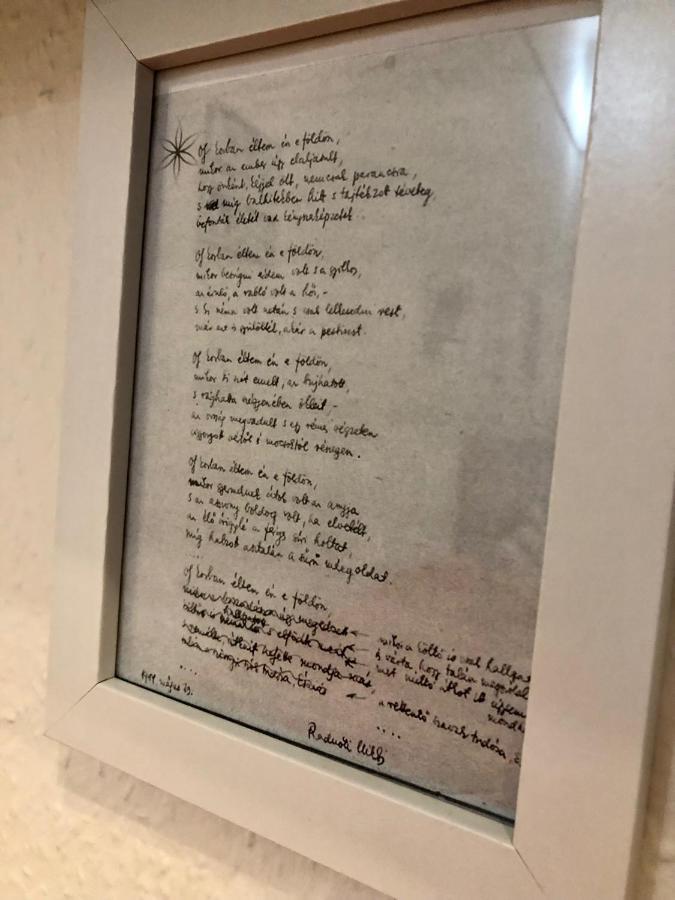 Oly korban éltem én e földön,
mikor az ember úgy elaljasult,
hogy önként, kéjjel ölt, nemcsak parancsra,
s míg balhitekben hitt s tajtékzott téveteg,
befonták életét vad kényszerképzetek.
Oly korban éltem én e földön,
mikor besúgni érdem volt s a gyilkos,
az áruló, a rabló volt a hős, –
s ki néma volt netán s csak lelkesedni rest,
már azt is gyűlölték, akár a pestisest.
Oly korban éltem én e földön,
mikor ki szót emelt, az bujhatott,
s rághatta szégyenében ökleit, –
az ország megvadult s egy rémes végzeten
vigyorgott vértől s mocsoktól részegen.
Oly korban éltem én e földön,
mikor gyermeknek átok volt az anyja
s az asszony boldog volt, ha elvetélt,
az élő írigylé a férges síri holtat,
míg habzott asztalán a sűrű méregoldat.
....
Oly korban éltem én e földön,
mikor a költő is csak hallgat
és várta, hogy talán megszólal
mert méltó átkot itt úgysem
mondha
a rettentő szavak tudósa, É
....
....
1944. május 19.
Radnóti Miklós